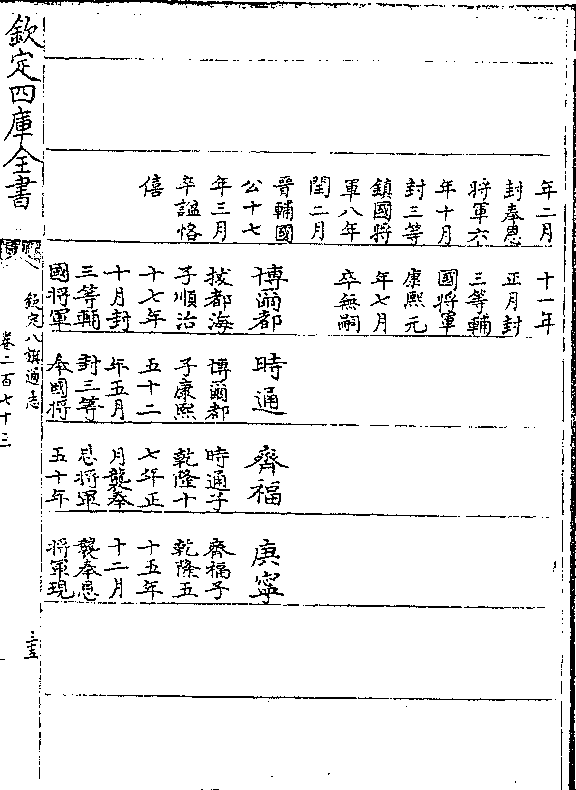 年二月
封奉恩
將軍六
年十月
封三等
鎮國將
軍八年
閏二月
晉輔國
公十七
年三月
卒諡恪
僖
十一年
正月封
三等輔
國將軍
康熙元
年七月
卒無嗣
博爾都
拔都海
子順治
十七年
十月封
三等輔
國將軍
時通
博爾都
子康熙
五十二
年五月
封三等
奉國將
齊福
時通子
乾隆十
七年正
月襲奉
恩將軍
五十年
庚寧
齊福子
乾隆五
十五年
十二月
襲奉恩
將軍現
欽定四庫全書
欽定八旗通志
卷二百七十三